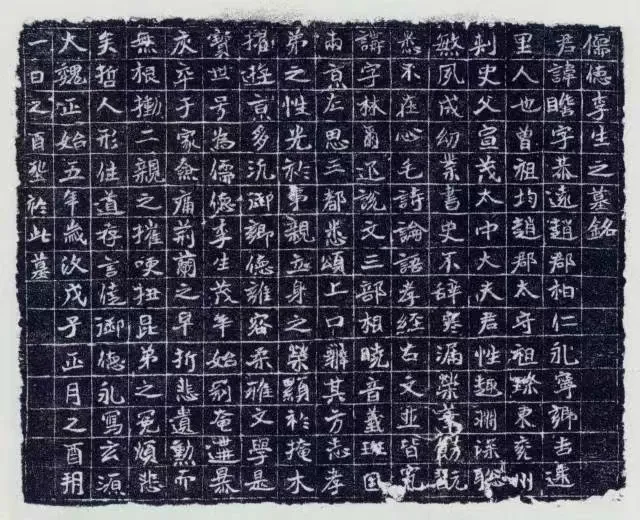 儒德李生之墓銘
君諱瞻字恭遠趙郡柏仁永寧鄉吉遷
里人也曾祖均趙郡太守祖璨東兗州
刺史父宣茂太中大夫君性趣淵深聡
敏夙成幼業書史不辞寒漏榮
悉不在心毛詩論語孝經古文並皆究
講字林爾迊說文三部相曉音義班固
兩京左思三都悉頌上口辯其方志孝
弟之性光於事親立身之榮顯於掩木
擢遊京多沉鄉德雖容柔雅文學是
寶世号為儒德李生茂年始冠奄遘暴
疾卒于家僉痛荊蘭之早折悲遺勳而
無根慟二親之摧哽扭昆弟之冤煩悲
矣哲人形住道存言佳鄉德永寫玄源
大魏正始五年歲次戊子正月之酉朔
一日之酉塟於此墓